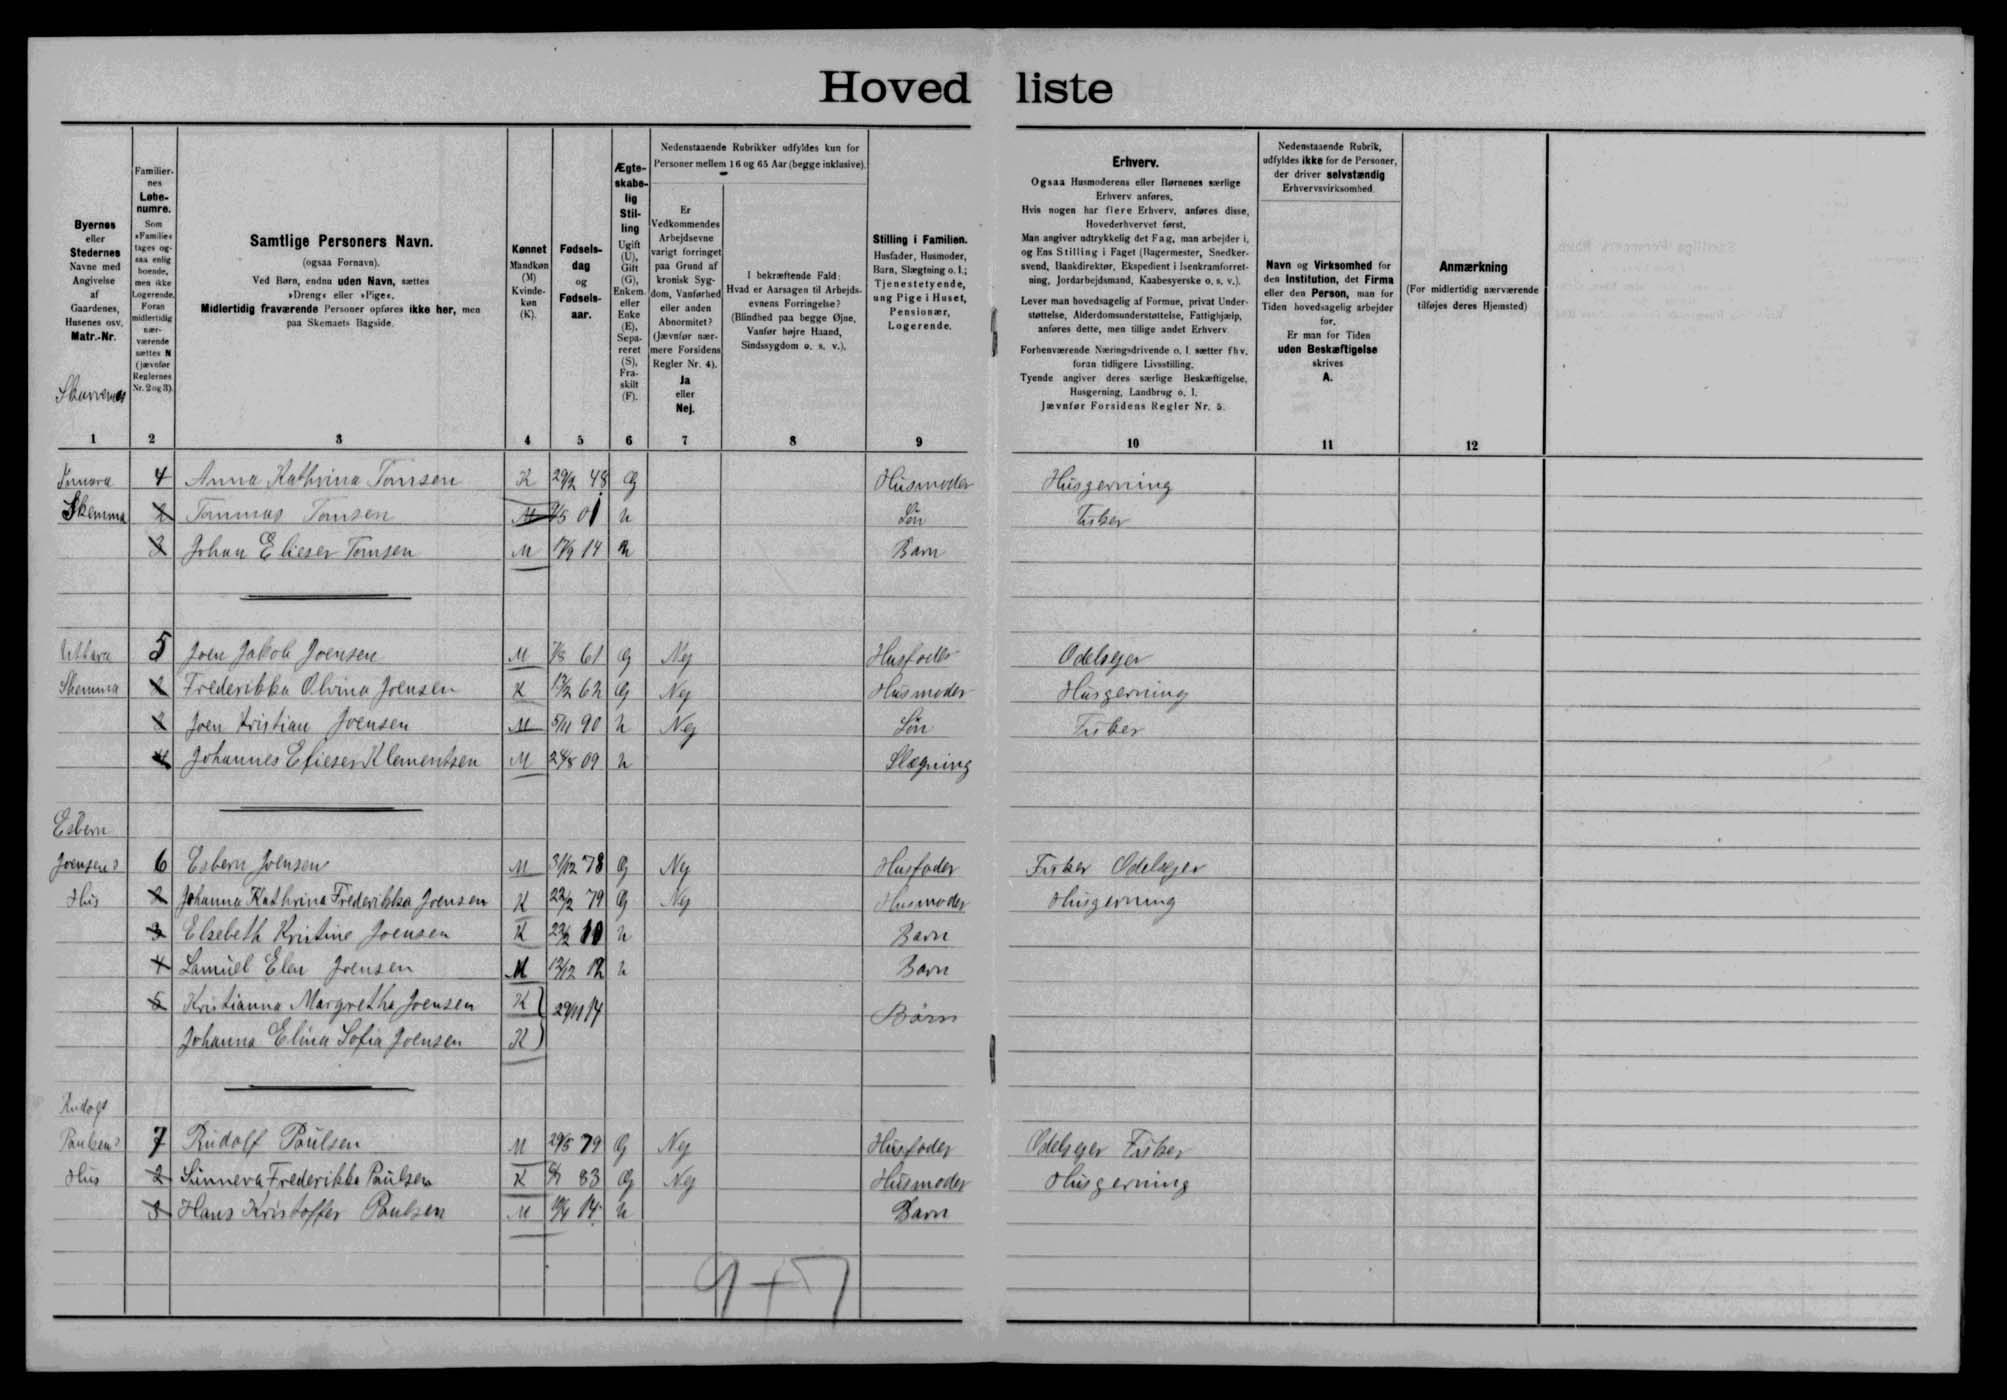 Hoved liste
Byernes
eller
Stedernes
Navne med
Angivelse
af
Gaardenes,
Husenes osv.
Matr.-Nr.
1
Familier-
nes
Løbe-
numre.
Som
»Familie«
tages og-
saa enlig
boende,
men ikke
Logerende.
Foran
midlertidig
nær-
værende
sættes N
(jævnfør
Reglernes
Nr. 2 og 3).
2
Samtlige Personers Navn.
(ogsaa Fornavn).
Ved Børn, endnu uden Navn, sættes
»Dreng« eller »Pige«.
Midlertidig fraværende Personer opføres ikke her, men
paa Skemaets Bagside.
3
Kønnet
Mandkøn
(M)
Kvinde-
køn
(K).
4
Fødsels-
dag
og
Fødsels-
aar.
5
Ægte-
skabe-
lig
Stil-
ling
Ugift
(U),
Gift
(G),
Enkem.
eller
Enke
(E),
Sepa-
reret
(S),
Fra-
skilt
(F).
6
Nedenstaaende Rubrikker udfyldes kun for
Personer mellem 16 og 65 Aar (begge inklusive).
Er
Vedkommendes
Arbejdsevne
varigt forringet
paa Grund af
kronisk Syg-
dom, Vanførhed
eller anden
Abnormitet?
(Jævnfør nær-
mere Forsidens
Regler Nr. 4).
Ja
eller
Nej.
7
I bekræftende Fald:
Hvad er Aarsagen til Arbejds-
evnens Forringelse?
(Blindhed paa begge Øjne,
Vanfør højre Haand,
Sindssygdom o. s. v.).
8
Stilling i Familien.
Husfader, Husmoder,
Barn, Slægtning o. l.;
Tjenestetyende,
ung Pige i Huset,
Pensionær,
Logerende.
9
Erhverv.
Ogsaa Husmoderens eller Børnenes særlige
Erhverv anføres.
Hvis nogen har flere Erhverv, anføres disse,
Hovederhvervet først.
Man angiver udtrykkelig det Fag, man arbejder i,
og Ens Stilling i Faget (Bagermester, Snedker-
svend, Bankdirektør, Ekspedient i Isenkramforret-
ning, Jordarbejdsmand, Kaabesyerske o. s. v.).
Lever man hovedsagelig af Formue, privat Under-
støttelse, Alderdomsunderstøttelse, Fattighjælp,
anføres dette, men tillige andet Erhverv
Forhenværende Næringsdrivende o. l. sætter fhv.
foran tidligere Livsstilling.
Tyende angiver deres særlige Beskæftigelse,
Husgerning, Landbrug o. l.
Jævnfør Forsidens Regler Nr. 5.
10
Nedenstaaende Rubrik,
udfyldes ikke for de Personer,
der driver selvstændig
Erhvervsvirksomhed.
Navn og Virksomhed for
den Institution, det Firma
eller den Person, man for
Tiden hovedsagelig arbejder
for.
Er man for Tiden
uden Beskæftigelse
skrives
A.
11
Anmærkning
(For midlertidig nærværende
tilføjes deres Hjemsted)
12
4 Anna Kathrina Tomsen K 29/2 48 G Husmoder Husgerning
Skemma 2 Tommas Tomsen M 01 U Søn Fisker
3 Johan Elieser Tomsen M 17/9 14 U Barn
Uttara 5 Joen Jakob Joensen M 61 G Nej Husfader Odelsejer
Skemma 2 Frederikka Olvina Joensen K 13/2 62 G Nej Husmoder Husgerning
Joen Kristian Joensen M 5/11 90 U Nej Søn Fisker
4 Johannes Elieser Klementsen M 24/8 09 U Slægning
Esbern
Joensens 6 Esbern Joensen M 31/12 78 G Nej Husfader Fisker Odelsejer
Hus 2 Johanna Kathrina Frederikka Joensen K 22/2 79 G Nej Husmoder Husgerning
3 Elsebeth Kristine Joensen K 23/2 10 U Barn
4 Samuel Elen Joensen M 13/12 12 U Barn
5 Kristianna Margretha Joensen K 29/11 14 Børn
Johanna Elina Sofia Joensen K
Paulsens 7 Rudolf Paulsen M 29/5 79 G Nej Husfader Odelsejer Fisker
Hus 2 Sunneva Frederikka Paulsen K 83 G Nej Husmoder Husgerning
3 Hans Kristoffer Paulsen M 14 U Barn
9+7